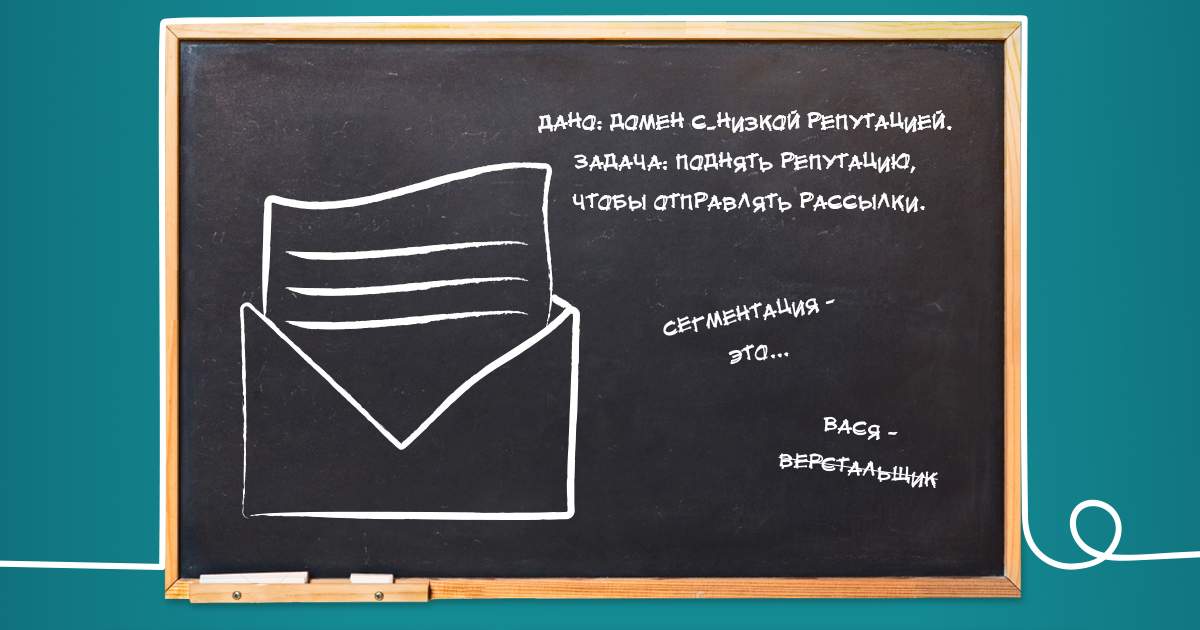 ДАНО: ДОМЕН С_НИЗКОЙ РЕПУТАЦИЕЙ.
ЗАДАЧА: ПОДНЯТЬ РЕПУТАЦИЮ,
ЧТОБЫ ОТПРАВЛЯТЬ РАССЫЛКИ.
СЕГМЕНТАЦИЯ -
ЭТО...
ВАСЯ -
ВЕРСТАЛЬЩИК